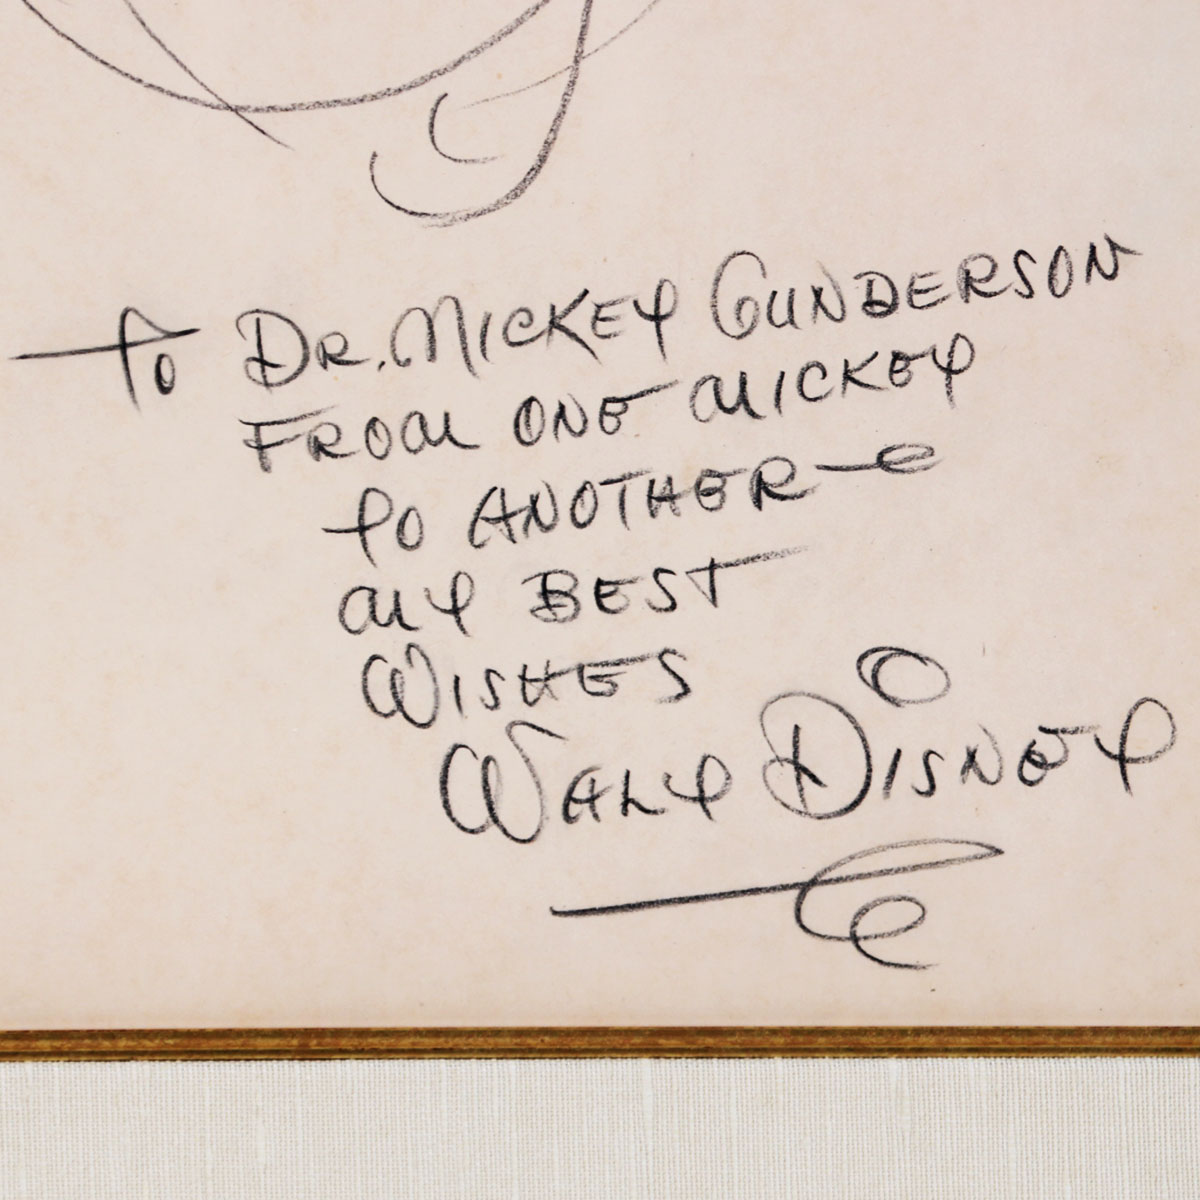 To DR. MICKEY GUNDERSON
FROM ONE MICKEY
TO ANOTHER —
MY BEST
WISHES
WALT DISNEY